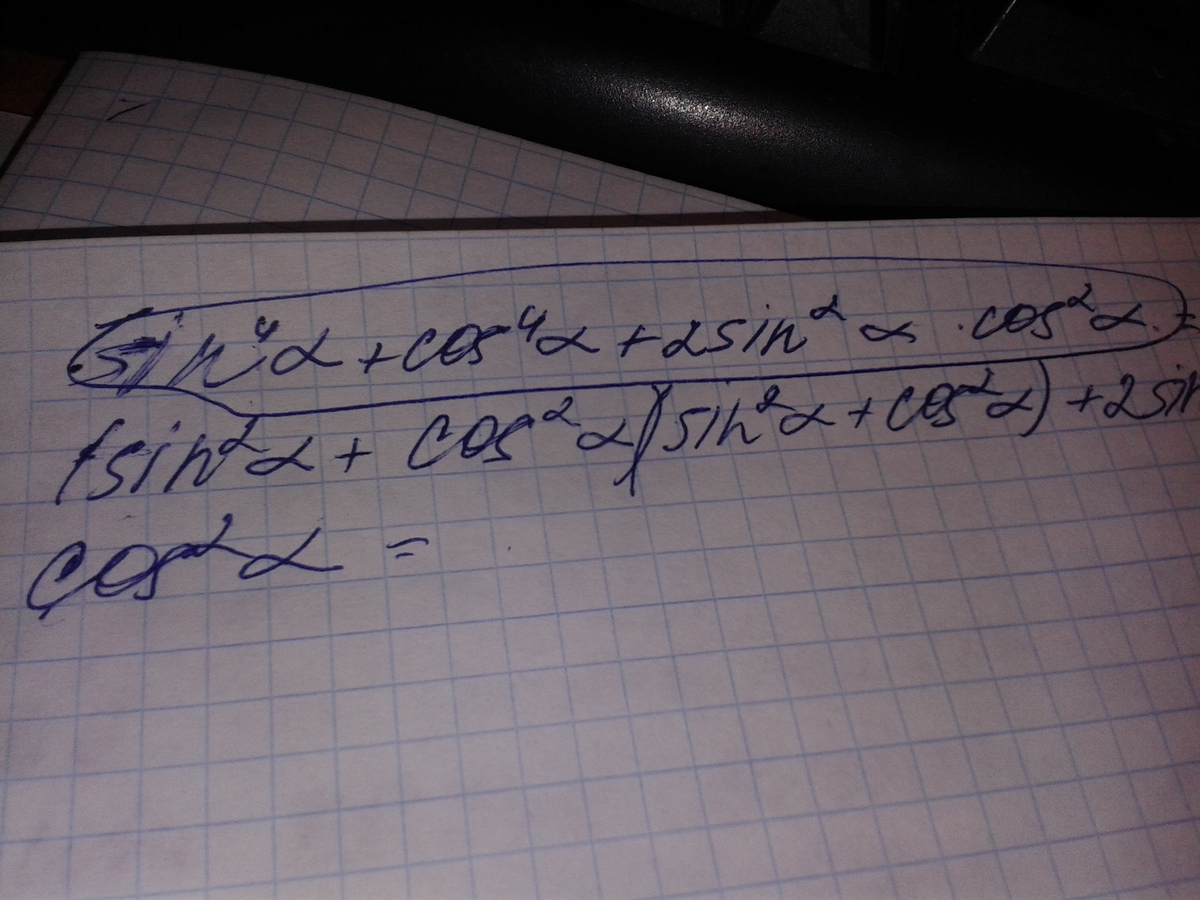 sin⁴α + cos⁴α + 2sin²α · cos²α =
(sin²α + cos²α)(sin²α + cos²α) + 2sin
cos²α =